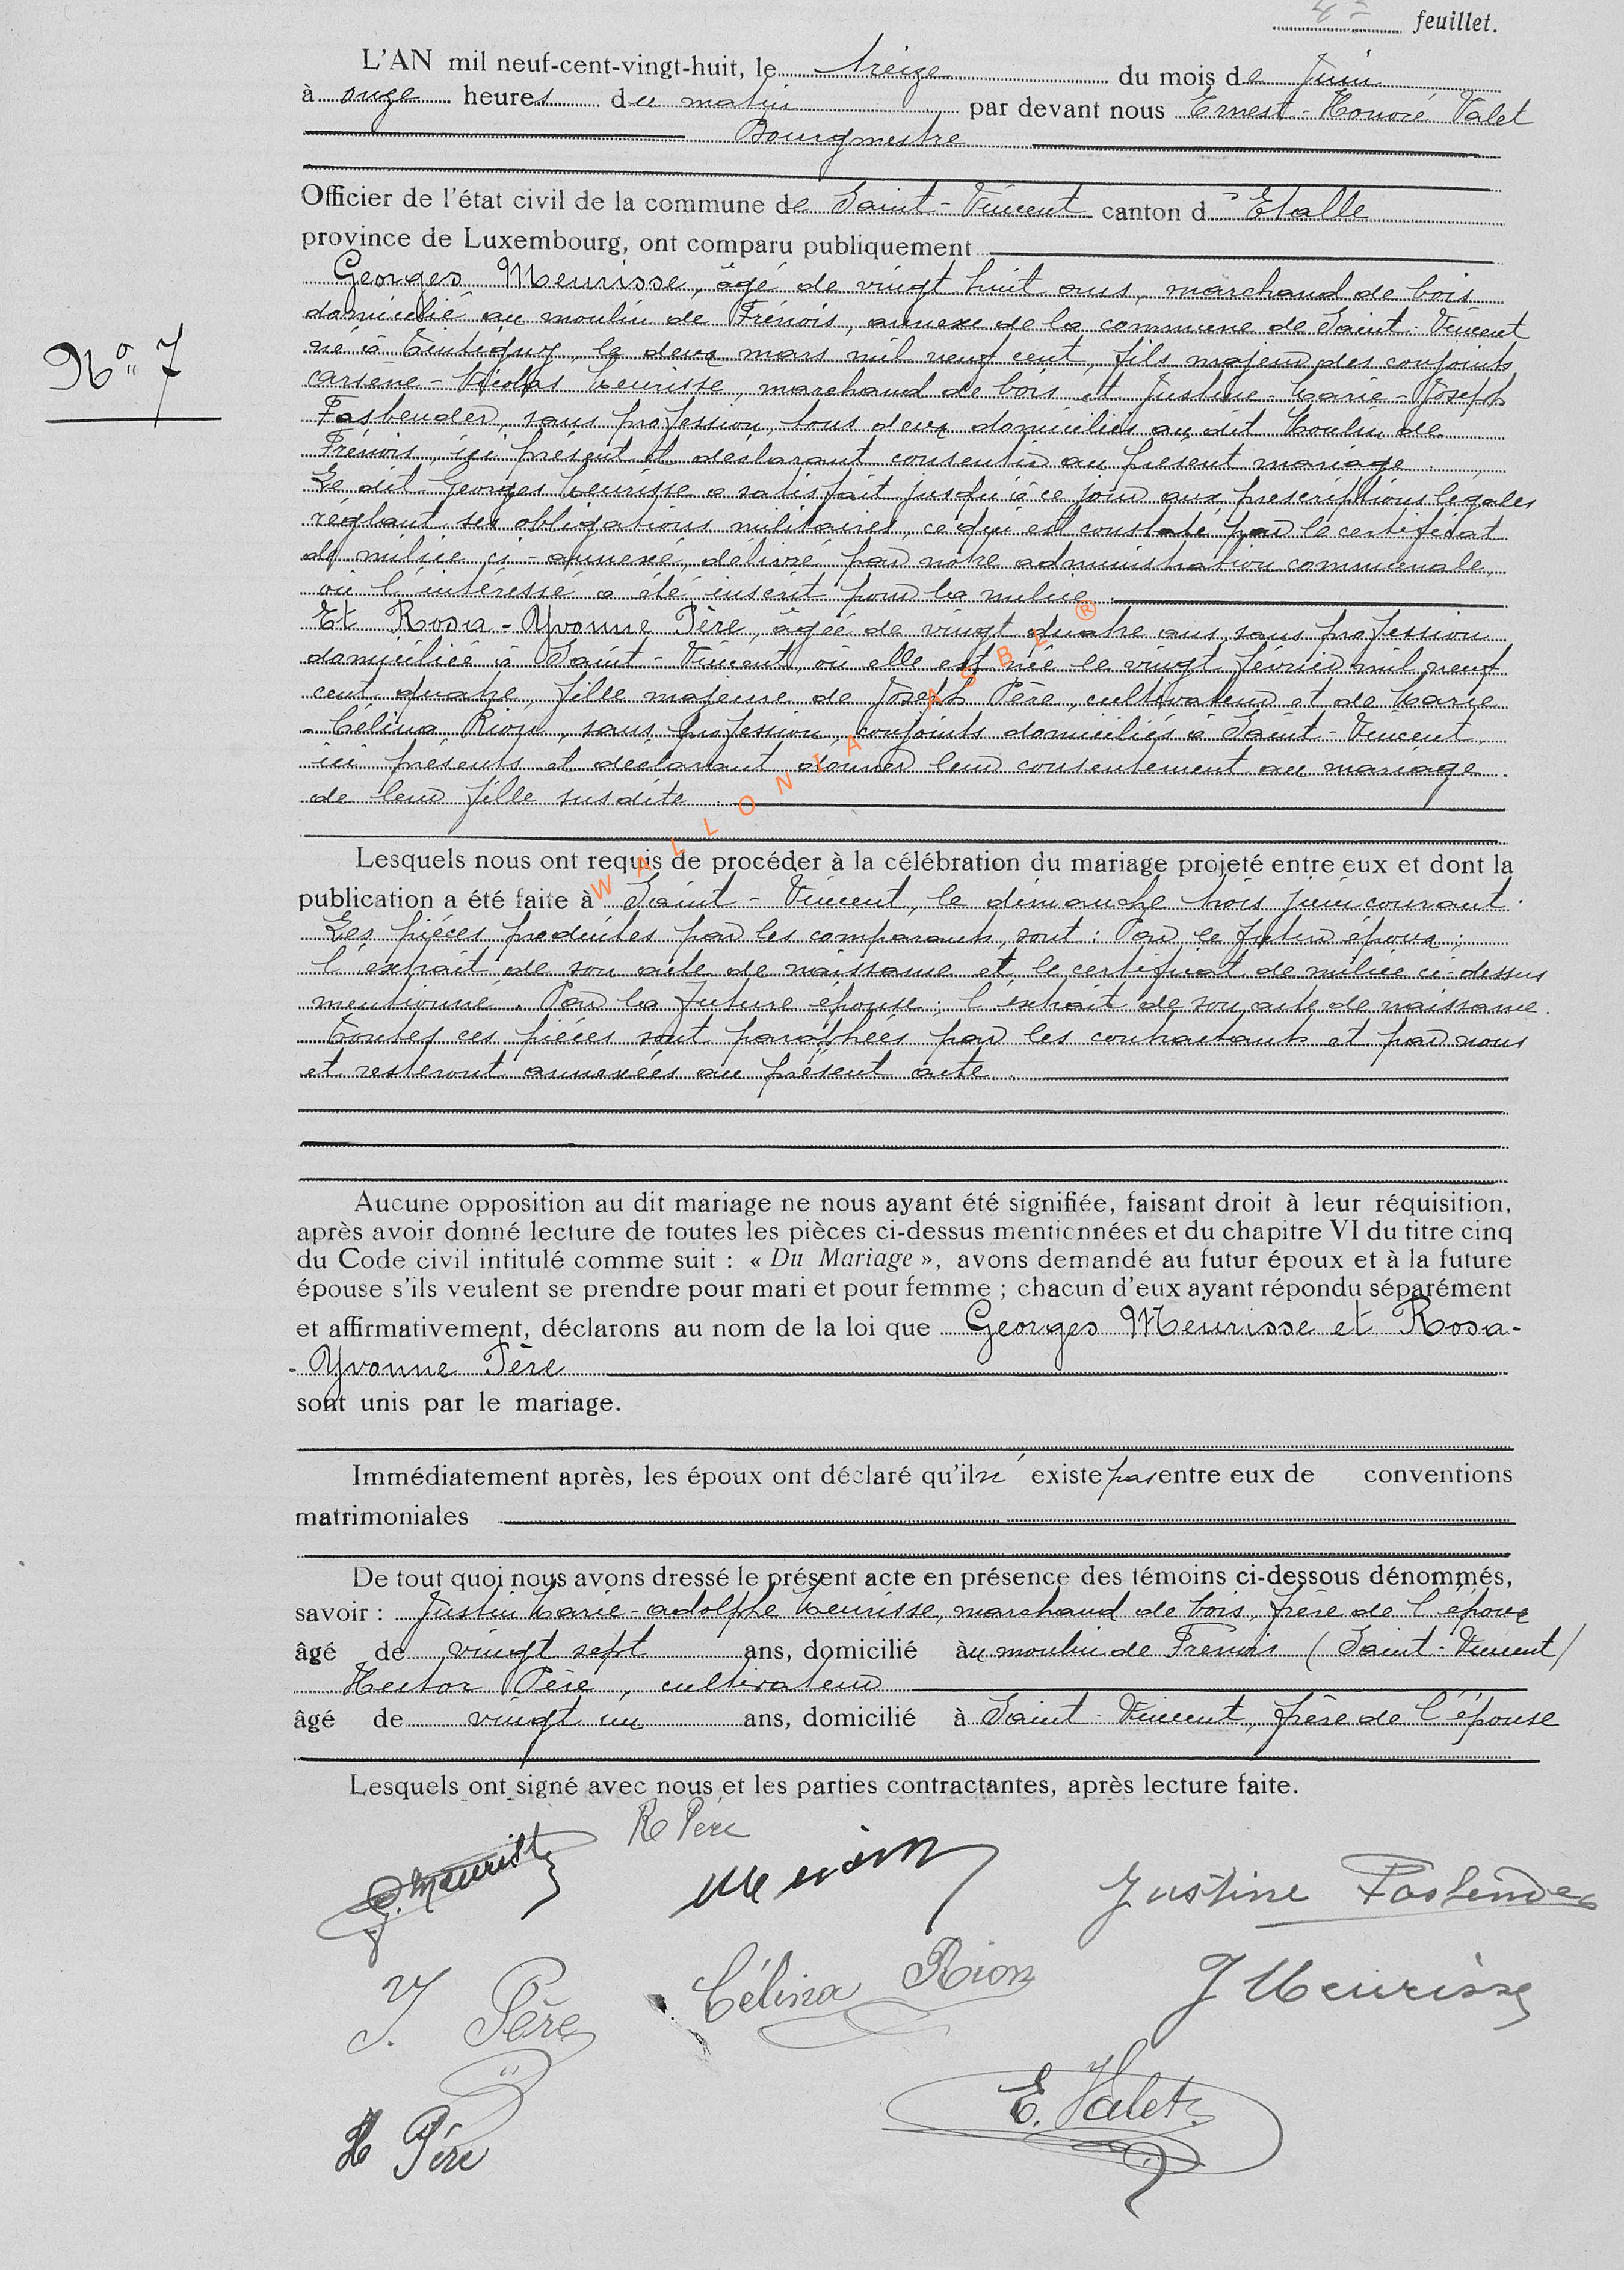 feuillet.
L'AN mil neuf-cent-vingt-huit, le treize du mois de Juin
à onze heures du matin par devant nous Ernest-Honoré Valet
Bourgmestre
Officier de l'état civil de la commune de Saint-Vincent canton d'Etalle
province de Luxembourg, ont comparu publiquement
Georges Meurisse, âgé de vingt huit ans, marchand de bois
domicilié au moulin de Frénois, annexe de la commune de Saint-Vincent
né à Tintigny, le deux mars mil neuf cent, fils majeur des conjoints
Arsène-Nicolas Meurisse, marchand de bois et Justine-Marie-Joseph
Fasbender, sans profession, tous deux domiciliés au dit Moulin de
Frénois, ici présent et déclarant consentir au présent mariage
Le dit Georges Meurisse a satisfait jusqu'à ce jour aux prescriptions légales
réglant ses obligations militaires, ce qui est constaté par le certificat
de milice ci-annexé, délivré par notre administration communale,
où l'intéressé a été inscrit pour la milice.
Et Rosa-Yvonne Père, âgée de vingt quatre ans, sans profession
domiciliée à Saint-Vincent, où elle est née le vingt février mil neuf
cent quatre, fille majeure de Joseph Père, cultivateur et de Marie
-Célina Rion, sans profession, conjoints domiciliés à Saint-Vincent,
ici présents et déclarant donner leur consentement au mariage
de leur fille susdite.
WALLONIA ASBL ®
Lesquels nous ont requis de procéder à la célébration du mariage projeté entre eux et dont la
publication a été faite à Saint-Vincent, le dimanche trois juin courant.
Les pièces produites par les comparants, sont : Par le futur époux :
l'extrait de son acte de naissance et le certificat de milice ci-dessus
mentionné. Par la future épouse : l'extrait de son acte de naissance.
Toutes ces pièces sont paraphées par les contractants et par nous
et resteront annexées au présent acte.
Aucune opposition au dit mariage ne nous ayant été signifiée, faisant droit à leur réquisition,
après avoir donné lecture de toutes les pièces ci-dessus mentionnées et du chapitre VI du titre cinq
du Code civil intitulé comme suit : « Du Mariage », avons demandé au futur époux et à la future
épouse s'ils veulent se prendre pour mari et pour femme ; chacun d'eux ayant répondu séparément
et affirmativement, déclarons au nom de la loi que Georges Meurisse et Rosa-
-Yvonne Père
sont unis par le mariage.
Immédiatement après, les époux ont déclaré qu'il n'existe pas entre eux de conventions
matrimoniales
De tout quoi nous avons dressé le présent acte en présence des témoins ci-dessous dénommés,
savoir : Justin Marie-Adolphe Meurisse, marchand de bois, frère de l'époux
âgé de vingt sept ans, domicilié au moulin de Frenois (Saint-Vincent)
Hector Père, cultivateur
âgé de vingt un ans, domicilié à Saint-Vincent, frère de l'épouse
Lesquels ont signé avec nous et les parties contractantes, après lecture faite.
N° 7
G. Meurisse R Père
Justine Fasbender
J. Père Célina Rion J Meurisse
E. Valet
H Père